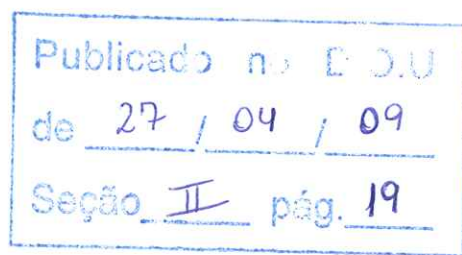 Publicado no D.O.U
de 27 / 04 / 09
Seção II pág. 19